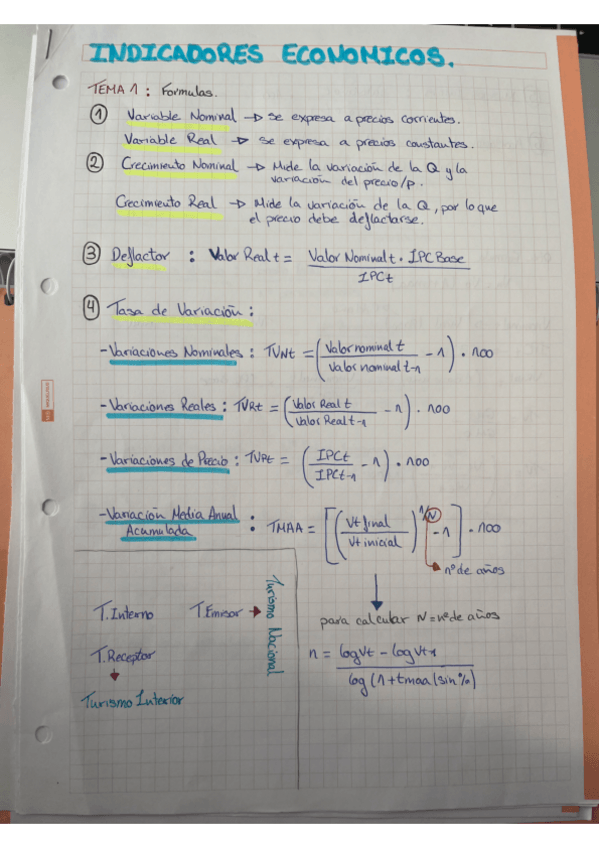 INDICADORES ECONOMICOS.
TEMA 1 : Formulas.
① Variable Nominal → Se expresa a precios corrientes.
Variable Real → Se expresa a precios constantes.
② Crecimiento Nominal → Mide la variación de la Q y la
variación del precio/p.
Crecimiento Real → Mide la variación de la Q, por lo que
el precio debe deflactarse.
③ Deflactor : Valor Real t = Valor Nominal t · IPC Base / IPCt
④ Tasa de Variación :
- Variaciones Nominales : TVNt = (Valor nominal t / Valor nominal t-1 - 1) · 100
- Variaciones Reales : TVRt = (Valor Real t / Valor Real t-1 - 1) · 100
- Variaciones de Precio : TVPt = (IPCt / IPCt-1 - 1) · 100
- Variación Media Anual
Acumulada : TMAA = [(Vt final / Vt inicial)^1/N - 1] · 100
nº de años
para calcular N = nº de años
n = log Vt - log Vt1 / log (1 + tmaa (sin %)
T. Interno T. Emisor → Turismo Nacional
T. Receptor
Turismo Interior